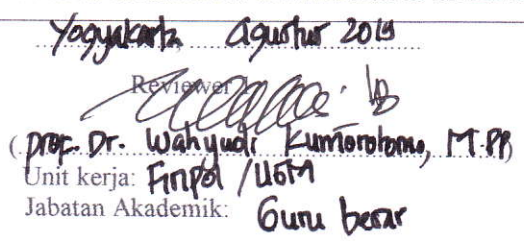 Yogyakarta Agustus 2019
Reviewer
(Prof. Dr. Wahyudi Kumorotomo, M.PP)
Unit kerja: Fisipol / UGM
Jabatan Akademik: Guru besar